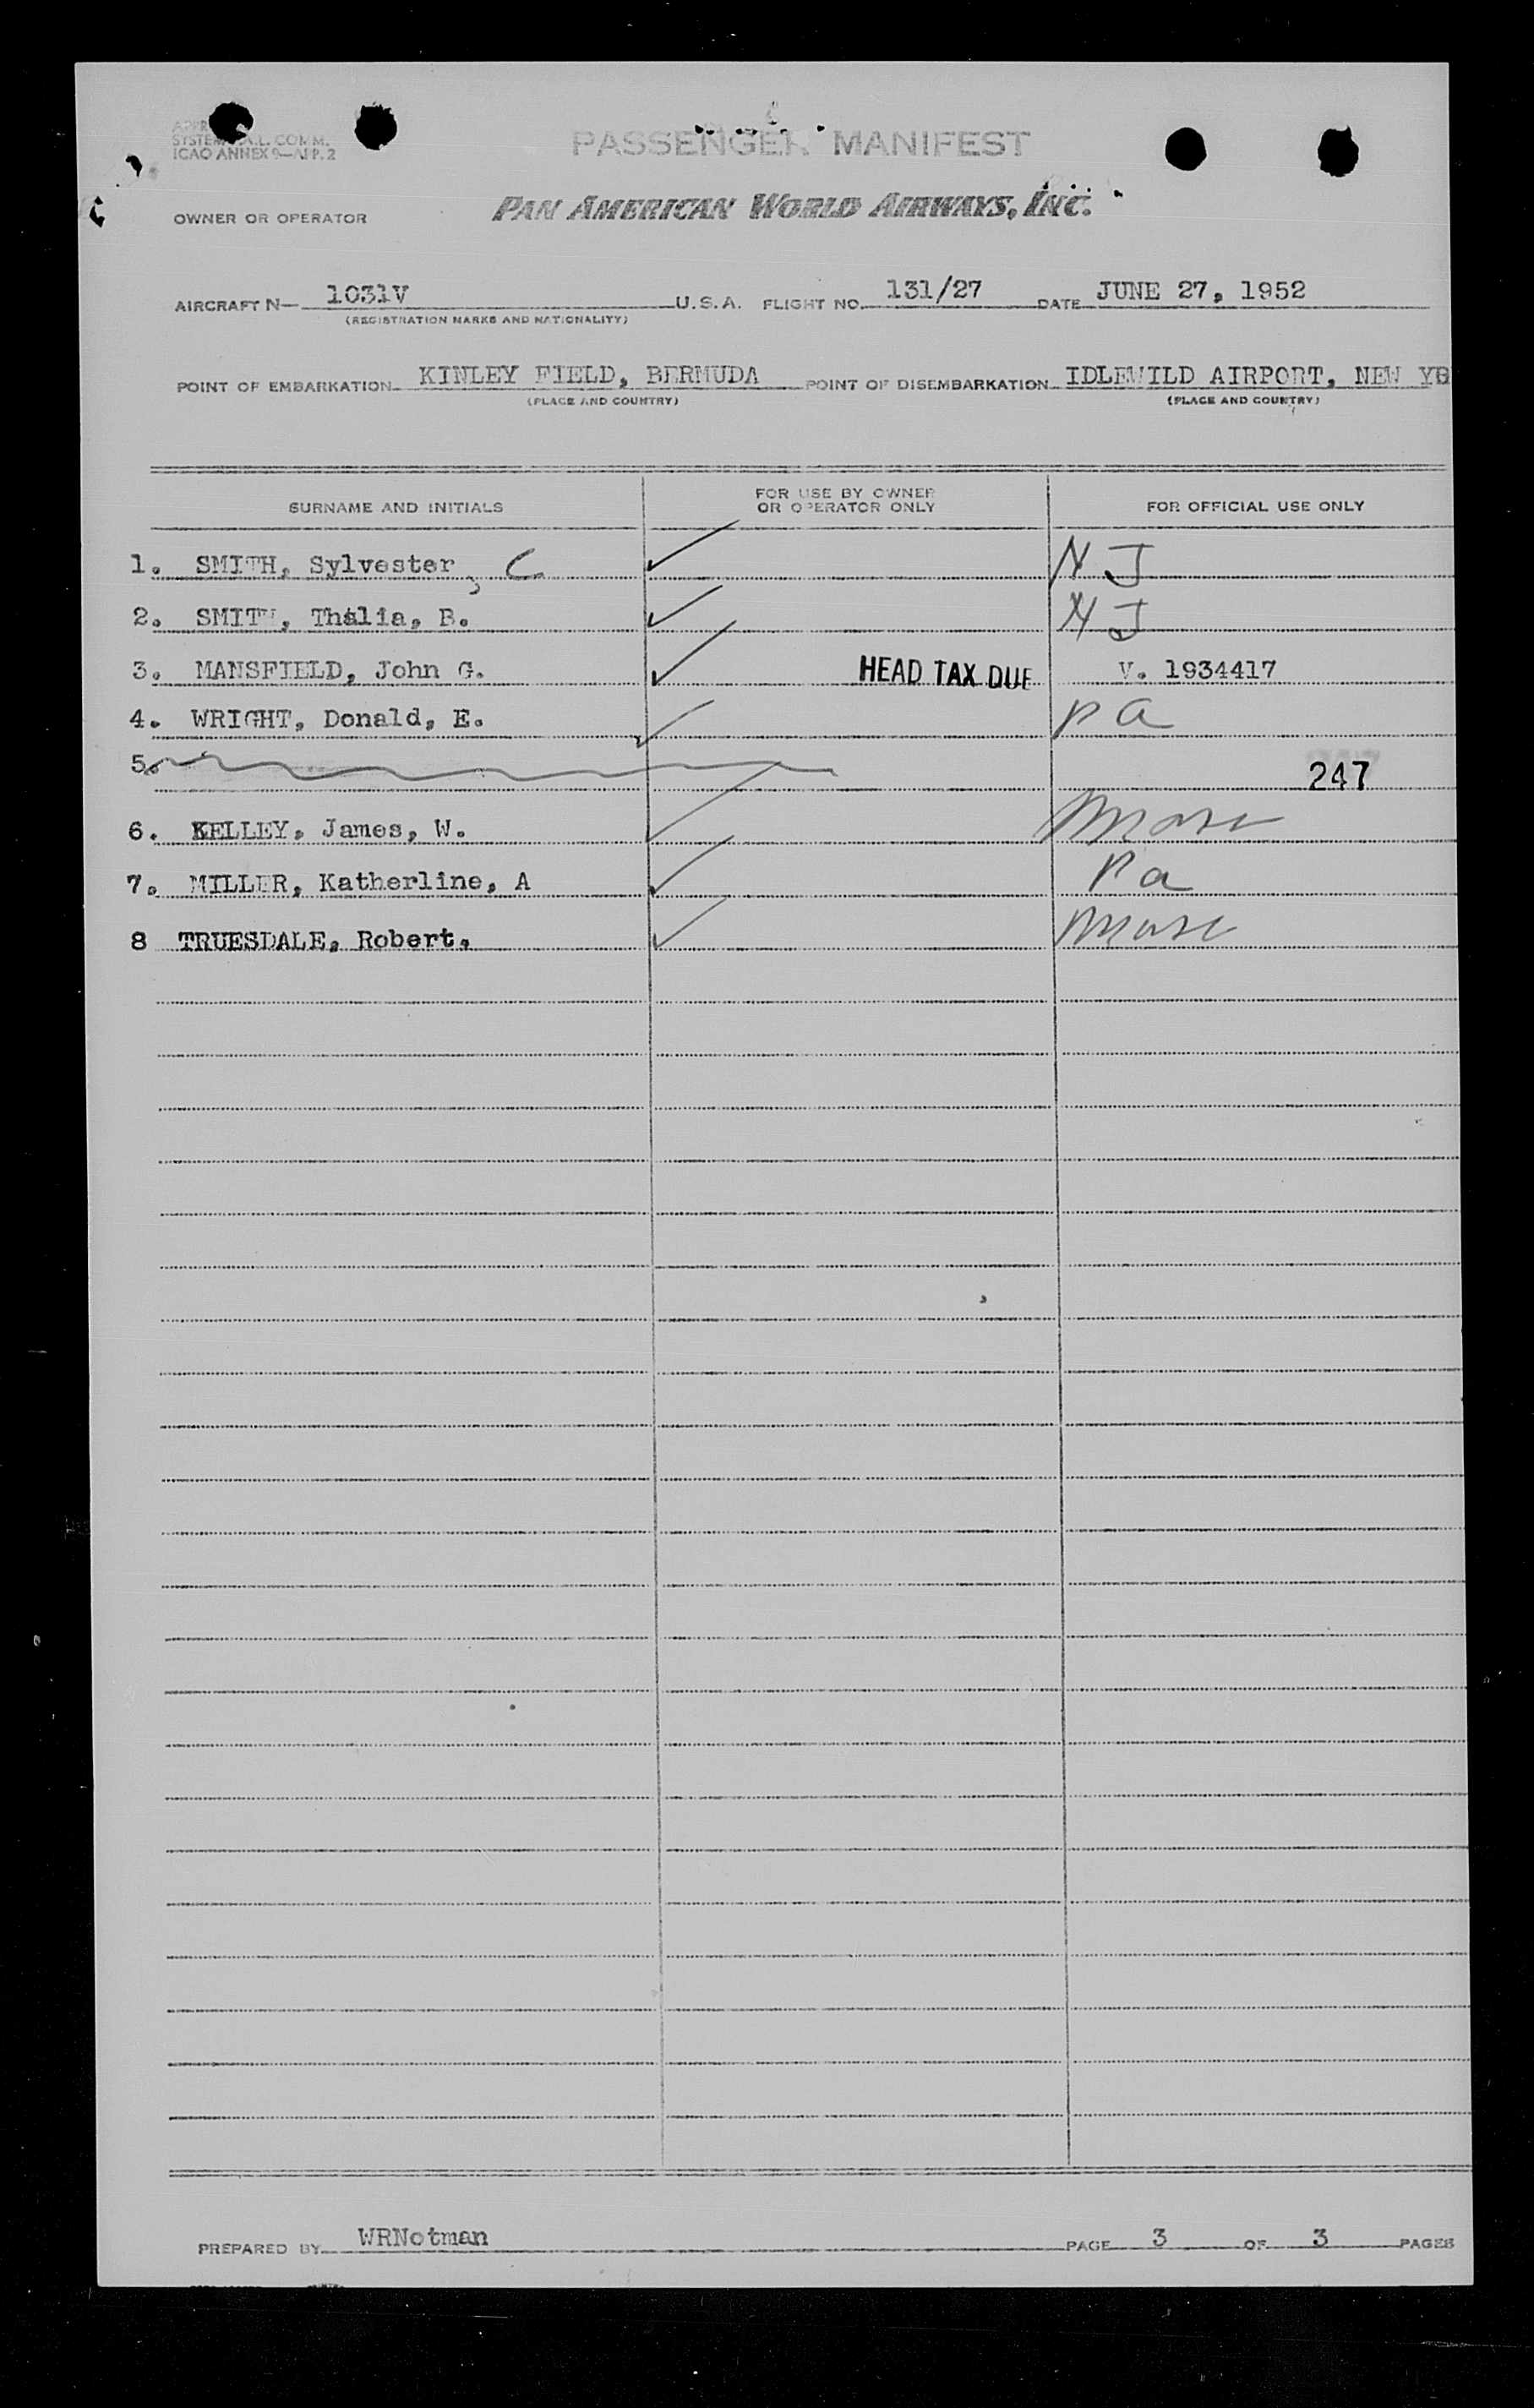 SYSTEM A.L. COMM.
ICAO ANNEX 9—APP. 2
PASSENGER MANIFEST
OWNER OR OPERATOR PAN AMERICAN WORLD AIRWAYS, INC.
AIRCRAFT N— 1031V U.S.A. FLIGHT NO. 131/27 DATE JUNE 27, 1952
(REGISTRATION MARKS AND NATIONALITY)
POINT OF EMBARKATION KINLEY FIELD, BERMUDA POINT OF DISEMBARKATION IDLEWILD AIRPORT, NEW YO
(PLACE AND COUNTRY) (PLACE AND COUNTRY)
SURNAME AND INITIALS FOR USE BY OWNER OR OPERATOR ONLY FOR OFFICIAL USE ONLY
1. SMITH, Sylvester, C ✓ NJ
2. SMITH, Thalia, B. ✓ NJ
3. MANSFIELD, John G. ✓ HEAD TAX DUE V. 1934417
4. WRIGHT, Donald, E. ✓ Pa
5. 247
6. KELLEY, James, W. ✓ Mass
7. MILLER, Katherline, A ✓ Pa
8 TRUESDALE, Robert. ✓ Mass
PREPARED BY WRNotman PAGE 3 OF 3 PAGES